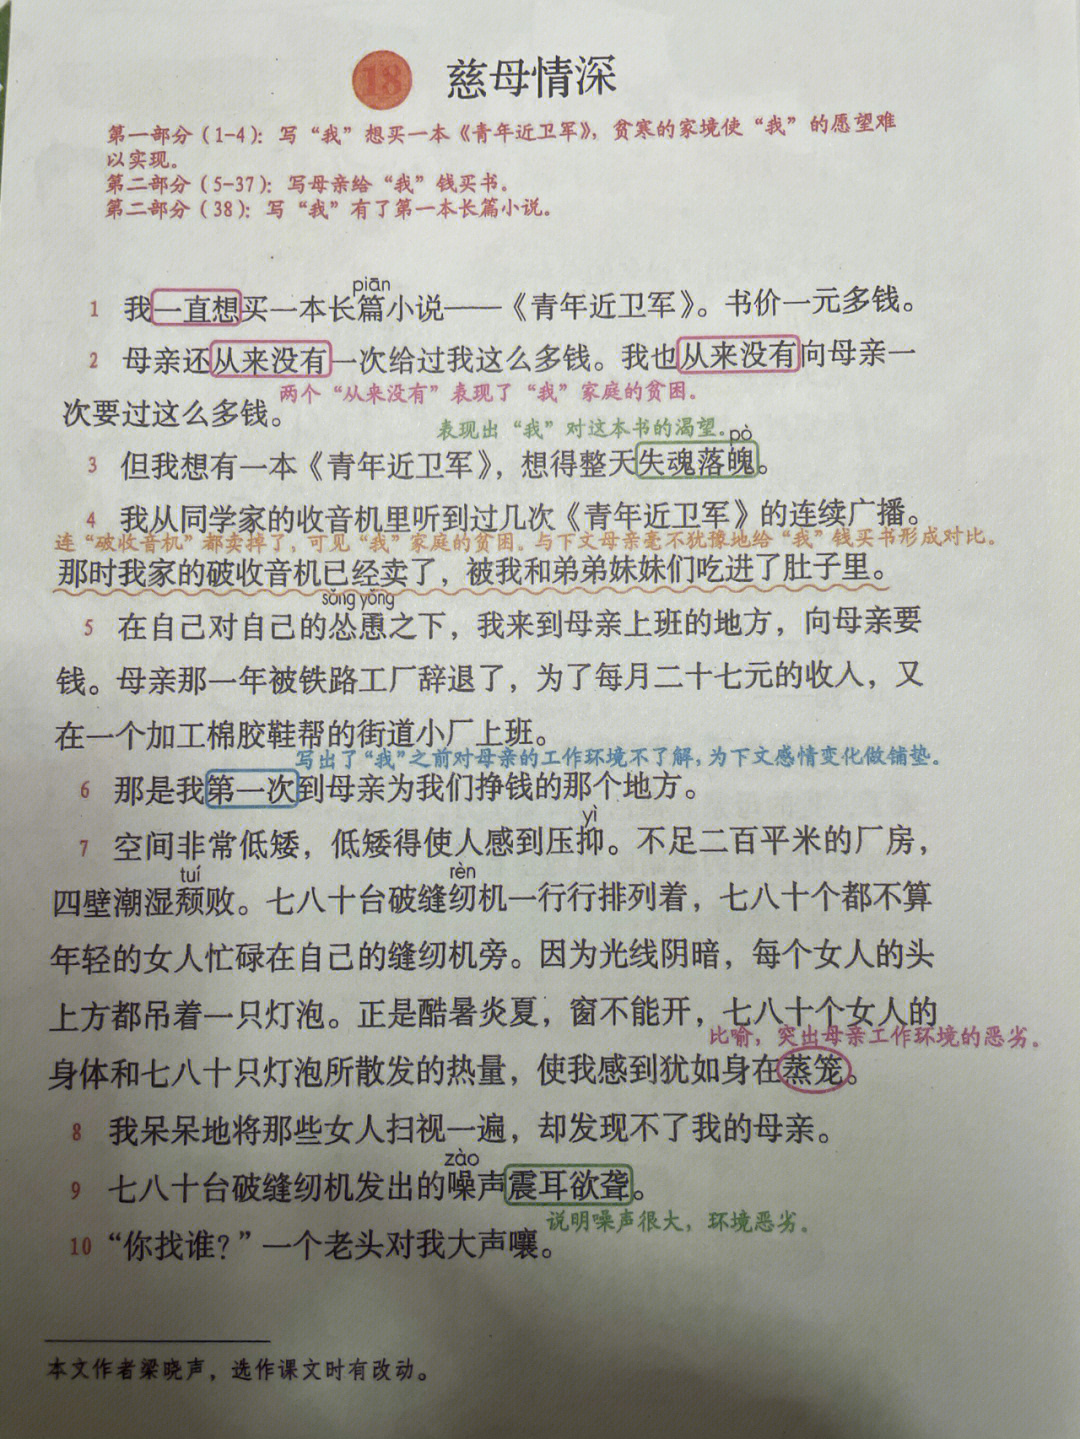 18 慈母情深
第一部分（1-4）：写“我”想买一本《青年近卫军》，贫寒的家境使“我”的愿望难
以实现。
第二部分（5-37）：写母亲给“我”钱买书。
第二部分（38）：写“我”有了第一本长篇小说。
piān
1 我一直想买一本长篇小说——《青年近卫军》。书价一元多钱。
2 母亲还从来没有一次给过我这么多钱。我也从来没有向母亲一
两个“从来没有”表现了“我”家庭的贫困。
次要过这么多钱。
表现出“我”对这本书的渴望。
pò
3 但我想有一本《青年近卫军》，想得整天失魂落魄。
4 我从同学家的收音机里听到过几次《青年近卫军》的连续广播。
连“破收音机”都卖掉了，可见“我”家庭的贫困。与下文母亲毫不犹豫地给“我”钱买书形成对比。
那时我家的破收音机已经卖了，被我和弟弟妹妹们吃进了肚子里。
sǒng yǒng
5 在自己对自己的怂恿之下，我来到母亲上班的地方，向母亲要
钱。母亲那一年被铁路工厂辞退了，为了每月二十七元的收入，又
在一个加工棉胶鞋帮的街道小厂上班。
写出了“我”之前对母亲的工作环境不了解，为下文感情变化做铺垫。
6 那是我第一次到母亲为我们挣钱的那个地方。
yì
7 空间非常低矮，低矮得使人感到压抑。不足二百平米的厂房，
tuí rèn
四壁潮湿颓败。七八十台破缝纫机一行行排列着，七八十个都不算
年轻的女人忙碌在自己的缝纫机旁。因为光线阴暗，每个女人的头
上方都吊着一只灯泡。正是酷暑炎夏，窗不能开，七八十个女人的
比喻，突出母亲工作环境的恶劣。
身体和七八十只灯泡所散发的热量，使我感到犹如身在蒸笼。
8 我呆呆地将那些女人扫视一遍，却发现不了我的母亲。
zào
9 七八十台破缝纫机发出的噪声震耳欲聋。
说明噪声很大，环境恶劣。
10 “你找谁？”一个老头对我大声嚷。
本文作者梁晓声，选作课文时有改动。